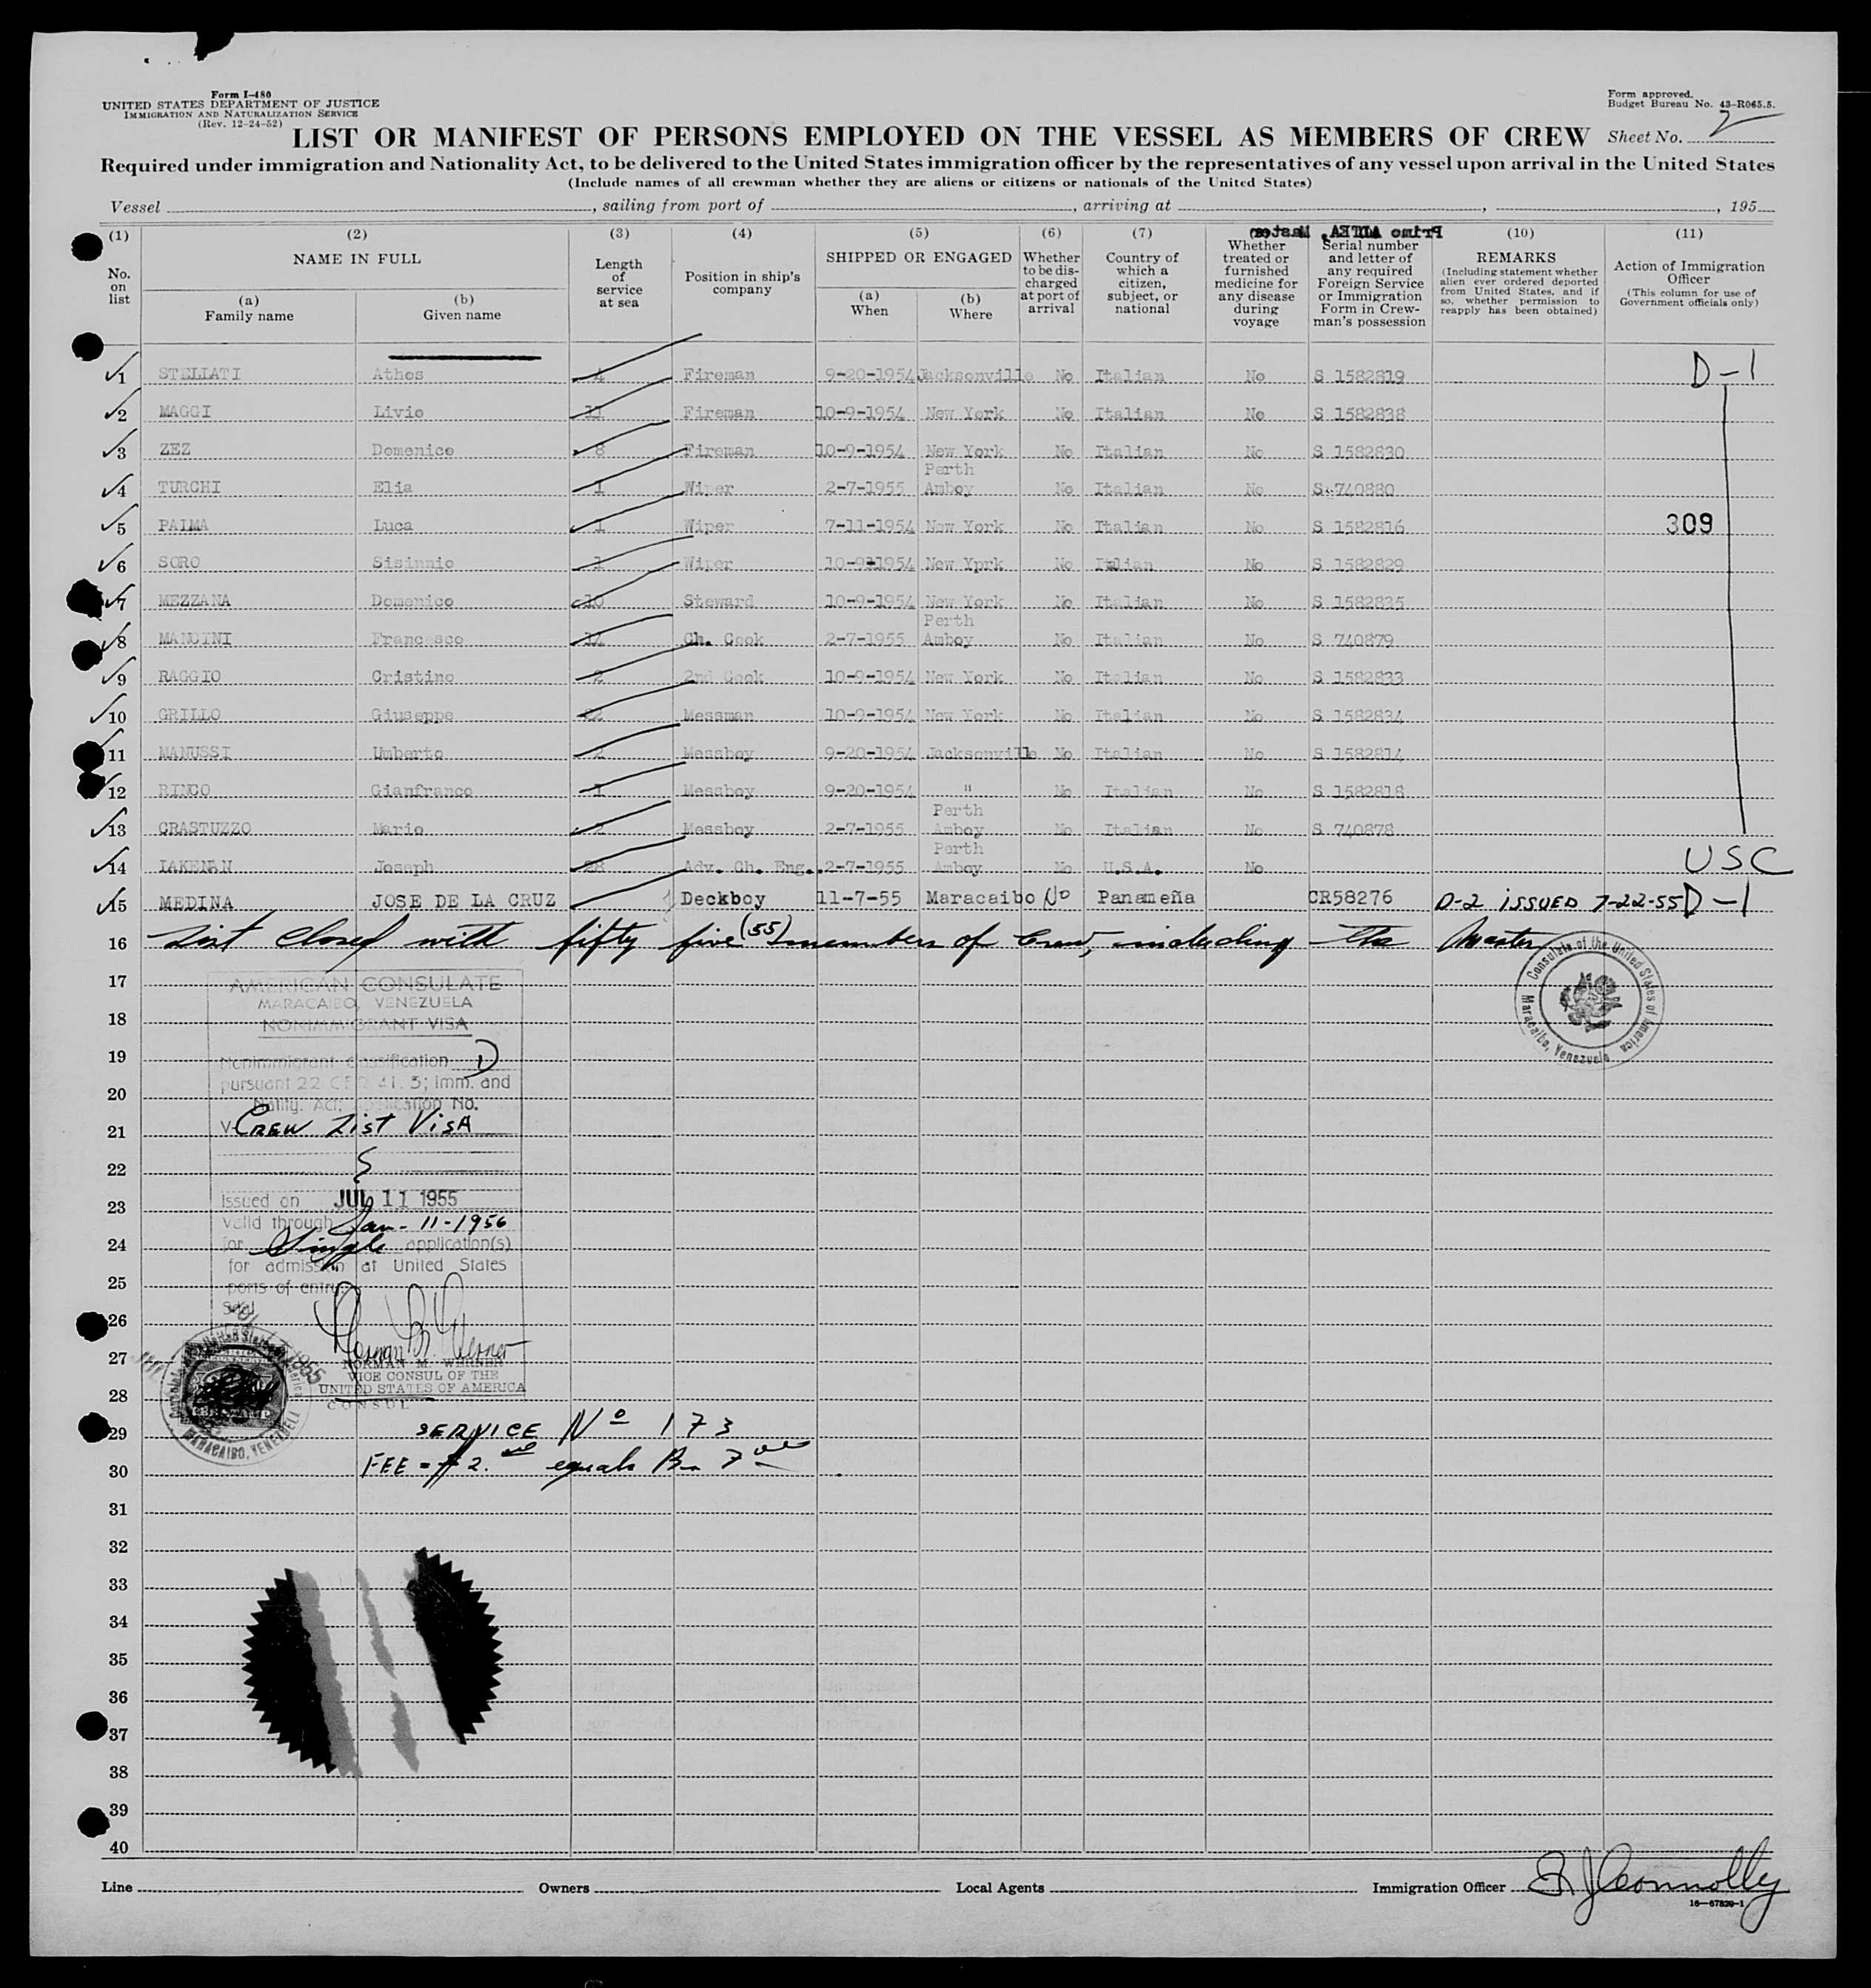 Form I-480
UNITED STATES DEPARTMENT OF JUSTICE
IMMIGRATION AND NATURALIZATION SERVICE
(Rev. 12-24-52)
Form approved.
Budget Bureau No. 43-R065.5.
LIST OR MANIFEST OF PERSONS EMPLOYED ON THE VESSEL AS MEMBERS OF CREW
Sheet No. 2
Required under immigration and Nationality Act, to be delivered to the United States immigration officer by the representatives of any vessel upon arrival in the United States
(Include names of all crewman whether they are aliens or citizens or nationals of the United States)
Vessel , sailing from port of , arriving at , , 195
(1) No. on list
(2) NAME IN FULL
(a) Family name
(b) Given name
(3) Length of service at sea
(4) Position in ship's company
(5) SHIPPED OR ENGAGED
(a) When
(b) Where
(6) Whether to be discharged at port of arrival
(7) Country of which a citizen, subject, or national
Whether treated or furnished medicine for any disease during voyage
Serial number and letter of any required Foreign Service or Immigration Form in Crewman's possession
(10) REMARKS
(Including statement whether alien ever ordered deported from United States, and if so, whether permission to reapply has been obtained)
(11) Action of Immigration Officer
(This column for use of Government officials only)
1 STELLATI Athos 4 Fireman 9-20-1954 Jacksonville No Italian No S 1582819 D-1
2 MAGGI Livio 11 Fireman 10-9-1954 New York No Italian No S 1582838
3 ZEZ Domenico 8 Fireman 10-9-1954 New York No Italian No S 1582830
4 TURCHI Elia 1 Wiper 2-7-1955 Perth Amboy No Italian No S 740880
5 PALMA Luca 1 Wiper 7-11-1954 New York No Italian No S 1582816 309
6 SORO Sisinnio 1 Wiper 10-9-1954 New Yprk No Italian No S 1582829
7 MEZZANA Domenico 10 Steward 10-9-1954 New York No Italian No S 1582835
8 MANCINI Francesco 14 Ch. Cook 2-7-1955 Perth Amboy No Italian No S 740879
9 RAGGIO Cristino 2 2nd Cook 10-9-1954 New York No Italian No S 1582833
10 GRILLO Giuseppe 22 Messman 10-9-1954 New York No Italian No S 1582834
11 MANUSSI Umberto 2 Messboy 9-20-1954 Jacksonville No Italian No S 1582814
12 BINCO Gianfranco 1 Messboy 9-20-1954 " No Italian No S 1582818
13 CRASTUZZO Mario 2 Messboy 2-7-1955 Perth Amboy No Italian No S 740878
14 LAKENAN Joseph 28 Adv. Ch. Eng. 2-7-1955 Perth Amboy No U.S.A. No USC
15 MEDINA JOSE DE LA CRUZ Deckboy 11-7-55 Maracaibo No Panameña CR58276 D-2 ISSUED 7-22-55 D-1
16 List closed with fifty five (55) members of Crew, including the Master
17
18
19
20
21
22
23
24
25
26
27
28
29
30
31
32
33
34
35
36
37
38
39
40
AMERICAN CONSULATE
MARACAIBO, VENEZUELA
NONIMMIGRANT VISA
Nonimmigrant classification D
pursuant 22 CFR 41.5; Imm. and
Natlty. Act; application No.
V-CREW List VisA
Issued on JUL 11 1955
valid through Jan-11-1956
for Single application(s)
for admission at United States
ports of entry.
Seal
NORMAN M. WERNER
VICE CONSUL OF THE
UNITED STATES OF AMERICA
CONSUL
Consulate of the United States of America
Maracaibo, Venezuela
MARACAIBO, VENEZUELA
SERVICE Nº 173
FEE = $2.00 equals Bs 7.00
Line Owners Local Agents Immigration Officer J Connolly
16-67829-1